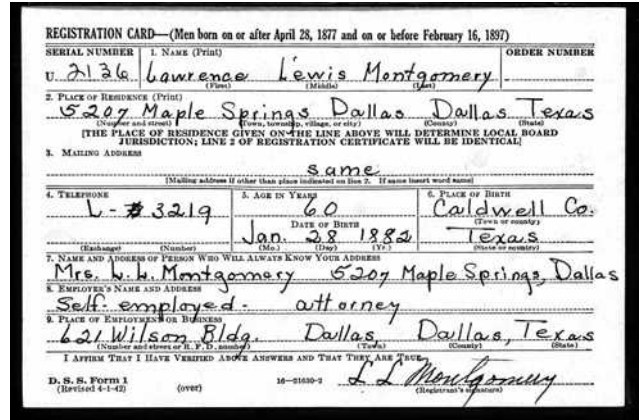 REGISTRATION CARD—(Men born on or after April 28, 1877 and on or before February 16, 1897)
SERIAL NUMBER 1. NAME (Print) ORDER NUMBER
U 2136 Lawrence Lewis Montgomery
(First) (Middle) (Last)
2. PLACE OF RESIDENCE (Print)
5207 Maple Springs Dallas Dallas Texas
(Number and street) (Town, township, village, or city) (County) (State)
[THE PLACE OF RESIDENCE GIVEN ON THE LINE ABOVE WILL DETERMINE LOCAL BOARD
JURISDICTION; LINE 2 OF REGISTRATION CERTIFICATE WILL BE IDENTICAL]
3. MAILING ADDRESS
same
[Mailing address if other than place indicated on line 2. If same insert word same]
4. TELEPHONE 5. AGE IN YEARS 6. PLACE OF BIRTH
L-3219 60 Caldwell Co.
DATE OF BIRTH (Town or county)
Jan. 28 1882 Texas
(Exchange) (Number) (Mo.) (Day) (Yr.) (State or country)
7. NAME AND ADDRESS OF PERSON WHO WILL ALWAYS KNOW YOUR ADDRESS
Mrs. L. L. Montgomery 5207 Maple Springs, Dallas
8. EMPLOYER'S NAME AND ADDRESS
Self employed - attorney
9. PLACE OF EMPLOYMENT OR BUSINESS
621 Wilson Bldg. Dallas, Dallas, Texas
(Number and street or R. F. D. number) (Town) (County) (State)
I AFFIRM THAT I HAVE VERIFIED ABOVE ANSWERS AND THAT THEY ARE TRUE.
D. S. S. Form 1 L L Montgomery
(Revised 4-1-42) (over) 16—21630-2 (Registrant's signature)